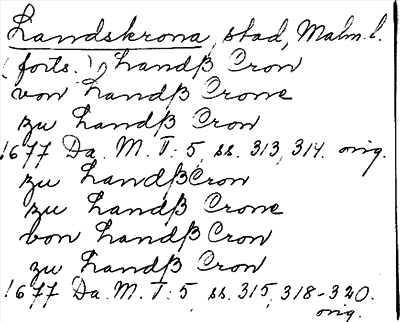 Landskrona, stad, Malm. l.
(forts.), Landβ Cron
von Landβ Crone
zu Landβ Cron
1677 Da. M. T. 5, ss. 313, 314. orig.
zu LandβCron
zu Landβ Crone
von Landβ Cron
zu Landβ Cron
1677 Da. M. T. 5, ss. 315, 318-320.
orig.